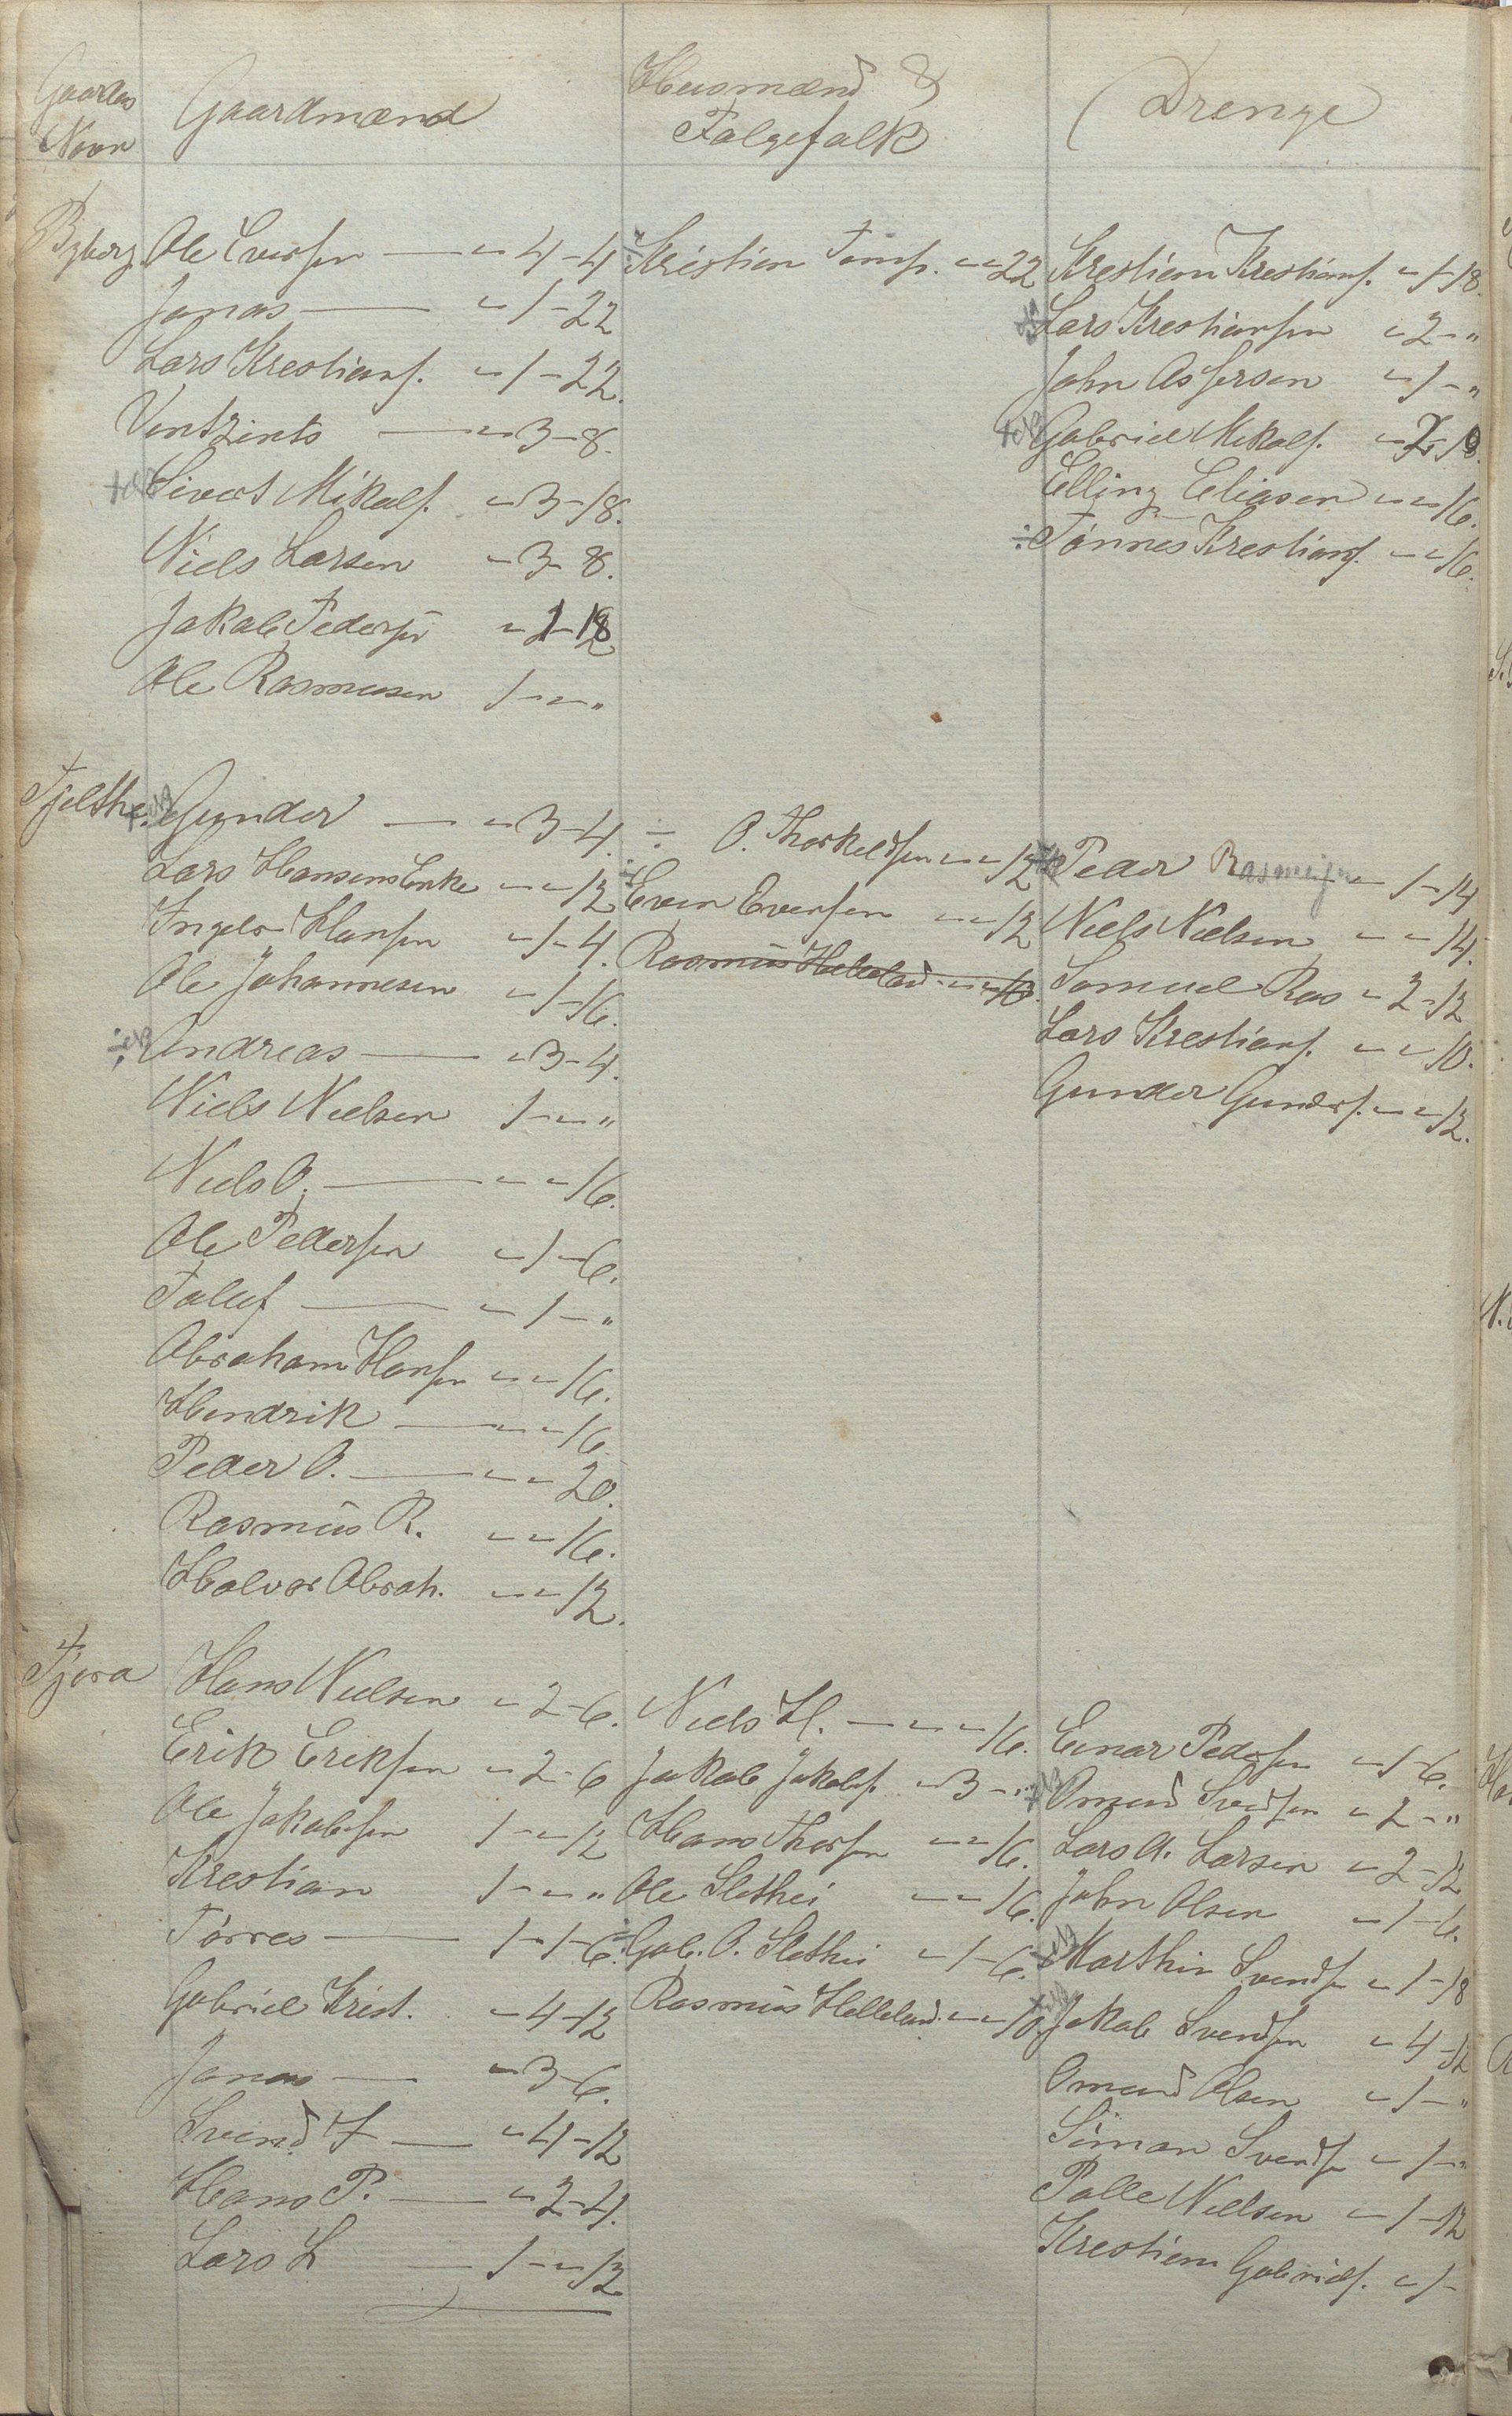 Gaardes
Navn
Gaardmænd
Husmænd &
Følgefolk
Drenge
Byberg. Ole Eversen — " 4 - 4
Jonas — " 1 - 22
Lars Krestians. " 1 - 22.
Ventzints — " 3 - 8.
Sivert Mikals. " 3 - 18.
Niels Larsen " 3 - 8.
Jakob Federsen
Ole Rasmusen 1 - " - "
÷ Kristian Tøns. " " 22
Krestian Krestians. " 1 - 18.
Lars Krestiansen " 2 - "
John Assersen " 1 - "
Gabriel Mikals.
Elling Eliasen " " 16.
÷ Tønnes Krestians. " " 16.
Fjelthe. Gunder — " 3 - 4.
Lars Hansens Enke " " 12
Ingebr Hansen " 1 - 4.
Ole Johannesen " 1 - 16.
÷ Andreas — " 3 - 4.
Niels Nielsen 1 - " - "
Niels O. — " " 16.
Ole Pedersen " 1 - 6.
Toluf — " 1 - "
Abraham Hansen " " 16.
Hendrik — " " 16.
Peder O. — " " 20.
Rasmus R. " " 16.
Halvor Abrah. " " 12.
÷ O. Thorkeldsen " " 12
÷ Even Evensen " " 12
Rasmus Helleland " " 10.
Peder Rasmusen 1 - 14
Niels Nielsen " " 14.
Samuel Ras " 2 - 12
Lars Krestians. " " 10.
Gunder Gunders. " " 12.
Tjora Hans Nielsen " 2 - 6.
Erik Eriksen " 2 - 6
Ole Jakobsen 1 - " 12
Krestian 1 - " - "
Tørres — 1 - 1 - 6.
Gabriel Krist. " 4 - 12
Jonas — " 3 - 6.
Svend T — " 4 - 12
Hans P. — " 2 - 4.
Lars L 1 - " 12
Niels H. — " " 16.
Jakob Jakobs. " 3 - "
Hans Thorsen " " 16.
Ole Slethei " " 16.
÷ Gab. O. Slethei " 1 - 6.
Rasmus Helleland. " " 10
Einar Pedersen " 1 - 6.
Omund Svendsen " 2 - "
Lars A. Larsen " 2 - 12
John Olsen " 1 - 6.
Marthin Svendsen " 1 - 18
Jakob Svendsen " 4 - 12
Omund Olsen " 1 - "
Simon Svendsen " 1 - "
Palle Nielsen " 1 - 12
Krestian Gabriels. " 1 -